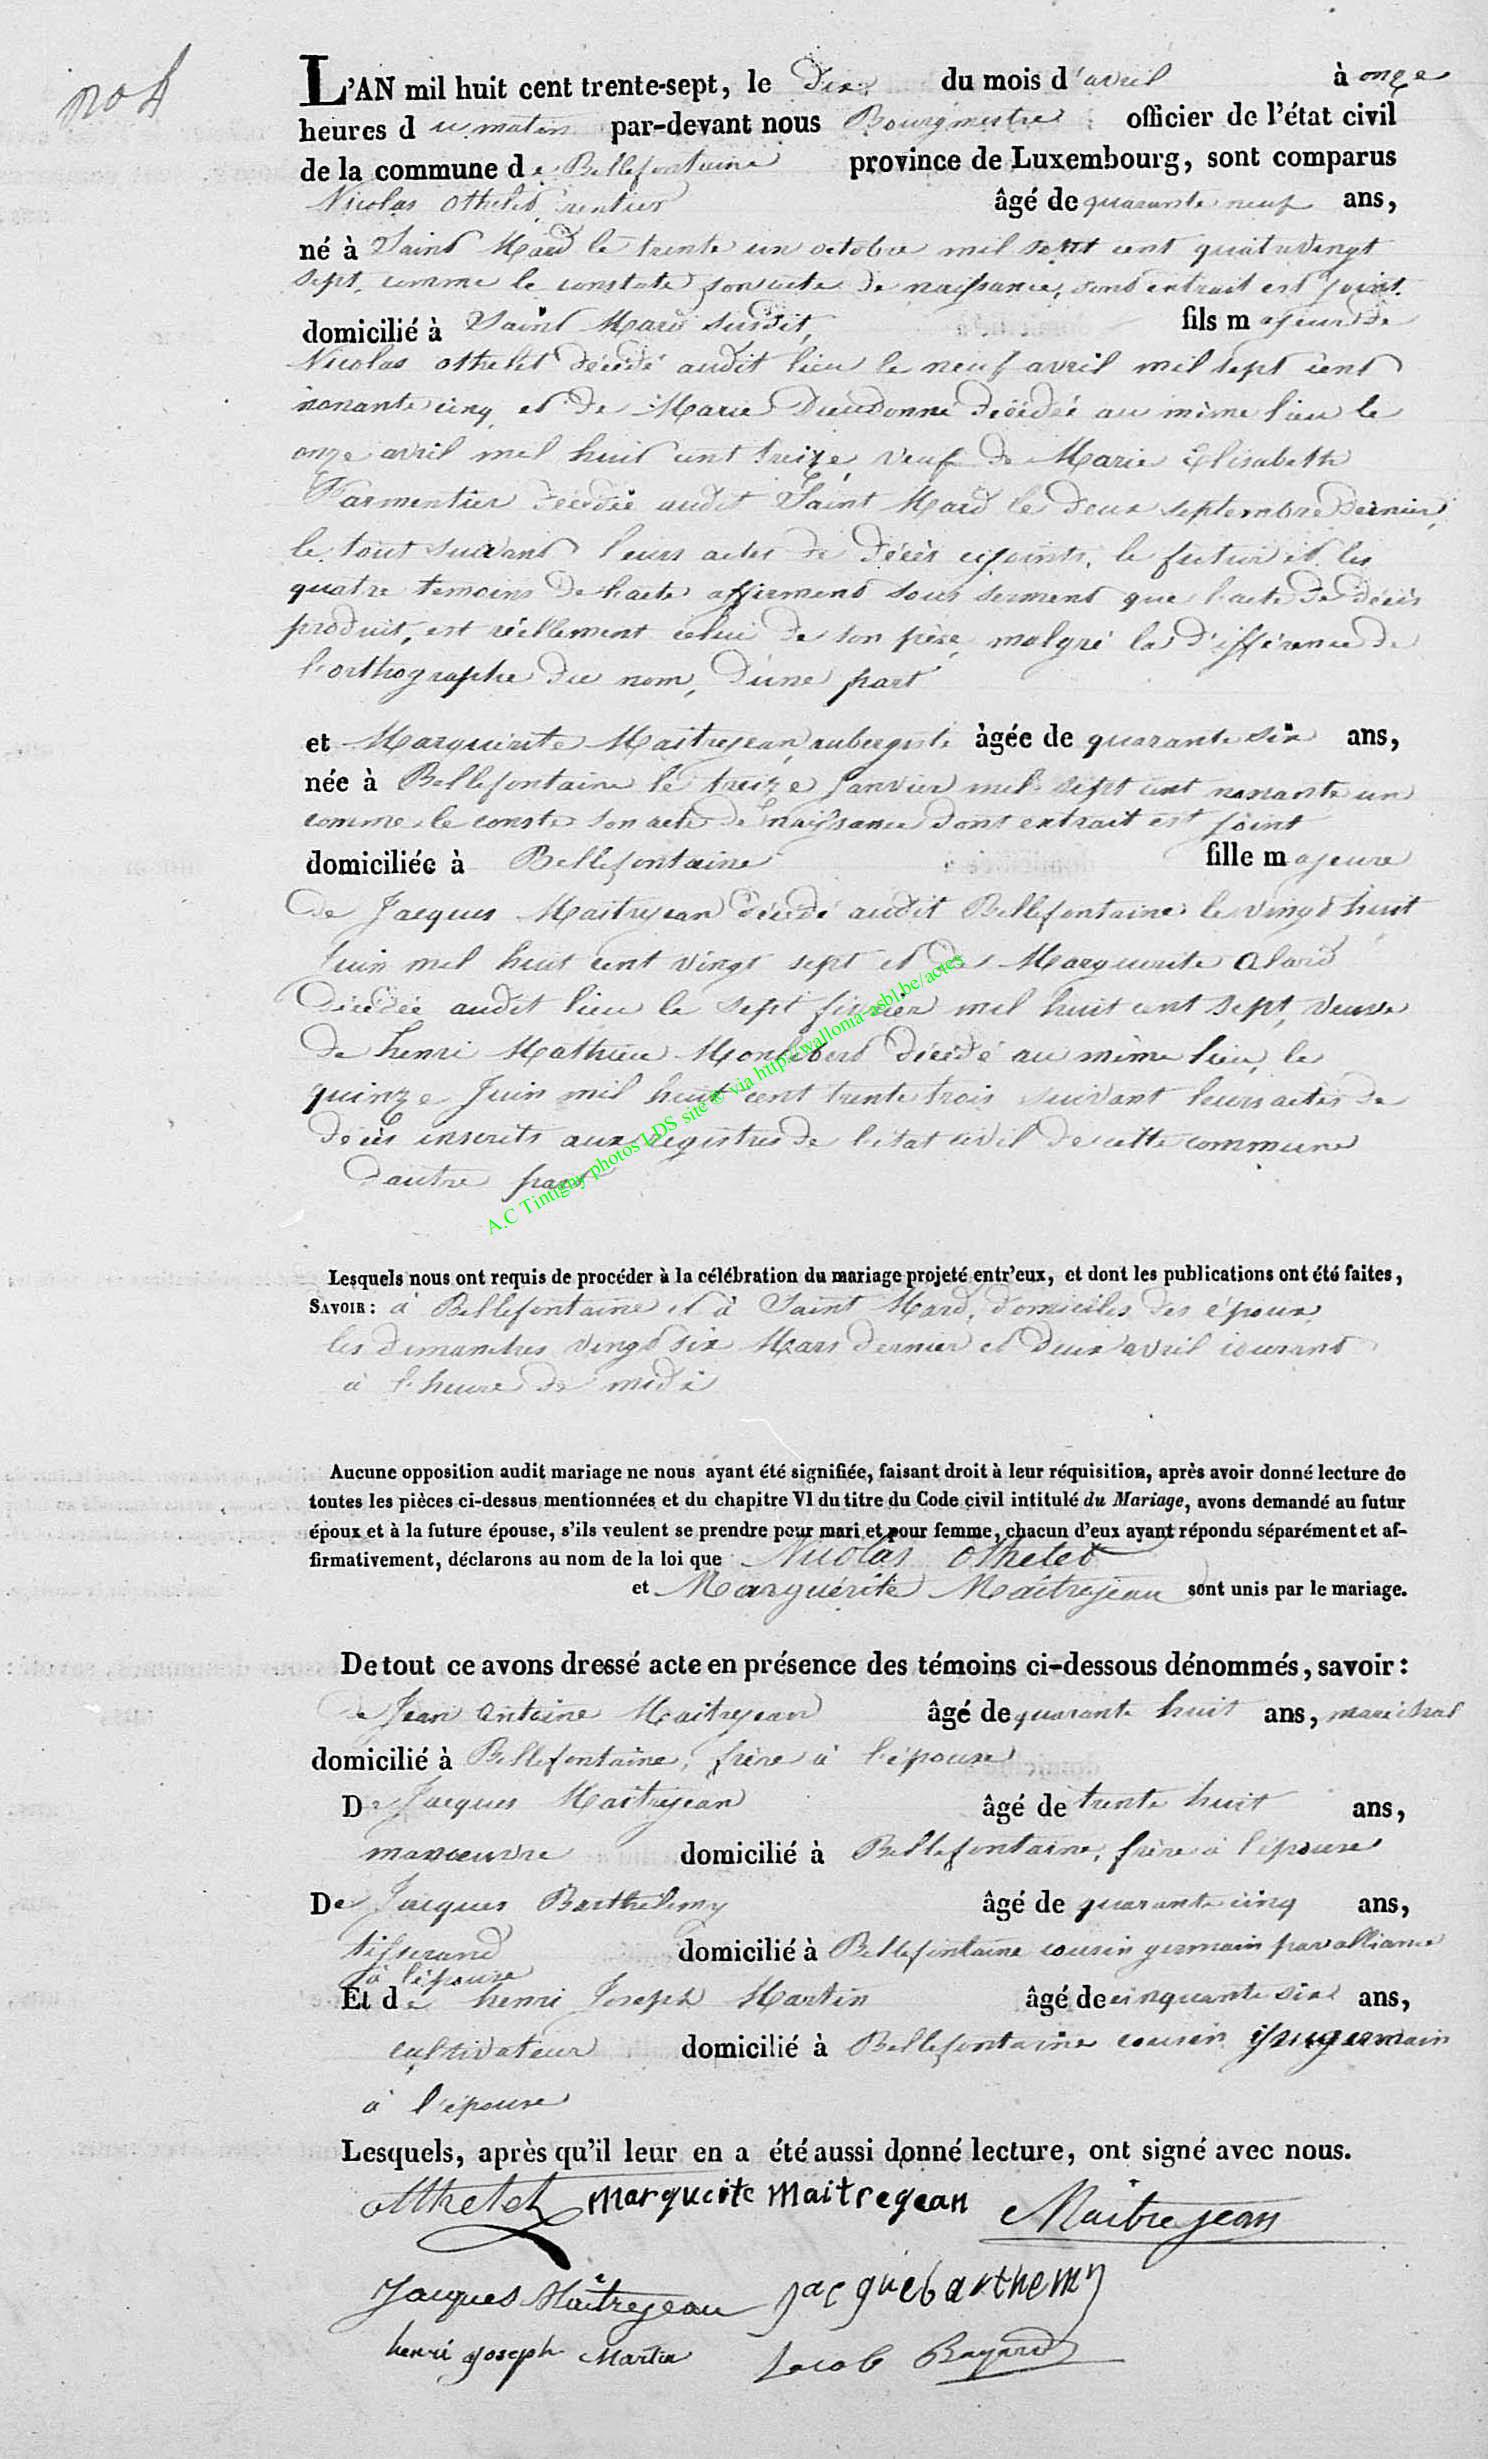 no 4
L'AN mil huit cent trente-sept, le dix du mois d'avril à onze
heures du matin par-devant nous Bourgmestre officier de l'état civil
de la commune de Bellefontaine province de Luxembourg, sont comparus
Nicolas Othelet rentier âgé de quarante neuf ans,
né à Saint Mard le trente un octobre mil sept cent quatrevingt
sept, comme le constate son acte de naissance, dont extrait est joint.
domicilié à Saint Mard susdit, fils majeur de
Nicolas Othelet décédé audit lieu le neuf avril mil sept cent
nonante cinq et de Marie Dieudonné décédée au même lieu le
onze avril mil huit cent treize, veuf de Marie Elisabeth
Parmentier décédée audit Saint Mard le deux septembre dernier,
le tout suivant leurs actes de décès cijoints, le futur et les
quatre temoins de l'acte affirment sous serment que l'acte de décès
produit, est réellement celui de son père, malgré la différence de
l'orthographe du nom, d'une part
et Marguérite Maitrejean, aubergiste âgée de quarante six ans,
née à Bellefontaine le treize Janvier mil sept cent nonante un
comme le conste son acte de naissance dont extrait est joint
domiciliée à Bellefontaine fille majeure
de Jacques Maitrejean décédé audit Bellefontaine le vingt huit
Juin mil huit cent vingt sept et de Marguerite Alard
décédée audit lieu le sept février mil huit cent sept, veuve
de henri Mathieu décédé au même lieu, le
quinze Juin mil huit cent trente trois suivant leurs actes de
décès inscrits aux registres de l'état civil de cette commune
d'autre part
A.C Tintigny photos LDS site @ via http://wallonia-asbl.be/actes
Lesquels nous ont requis de procéder à la célébration du mariage projeté entr'eux, et dont les publications ont été faites,
SAVOIR: à Bellefontaine et à Saint Mard, domiciles des époux,
les dimanches vingt six Mars dernier et deux avril courant
à l'heure de midi
Aucune opposition audit mariage ne nous ayant été signifiée, faisant droit à leur réquisition, après avoir donné lecture de
toutes les pièces ci-dessus mentionnées et du chapitre VI du titre du Code civil intitulé du Mariage, avons demandé au futur
époux et à la future épouse, s'ils veulent se prendre pour mari et pour femme, chacun d'eux ayant répondu séparément et af-
firmativement, déclarons au nom de la loi que Nicolas Othelet
et Marguérite Maitrejean sont unis par le mariage.
De tout ce avons dressé acte en présence des témoins ci-dessous dénommés, savoir:
de Jean Antoine Maitrejean âgé de quarante huit ans, maréchal
domicilié à Bellefontaine, frère à l'épouse
De Jacques Maitrejean âgé de trente huit ans,
manoeuvre domicilié à Bellefontaine, frère à l'épouse
De Jacques Barthelemy âgé de quarante cinq ans,
tisserand domicilié à Bellefontaine cousin germain par alliance
à l'épouse
Et de henri Joseph Martin âgé de cinquante six ans,
cultivateur domicilié à Bellefontaine cousin issugermain
à l'épouse
Lesquels, après qu'il leur en a été aussi donné lecture, ont signé avec nous.
Othelet Marguerite Maitregean Maitrejean
Jacques Maîtrejean Jacque barthemy
henri Joseph Martin Jacob Bayard